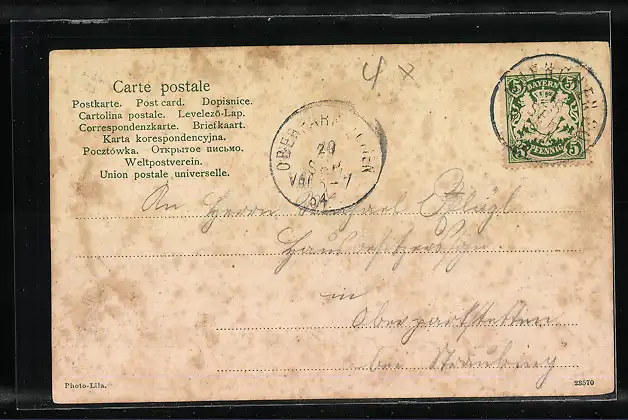 4 x
Carte postale
Postkarte. Post card. Dopisnice.
Cartolina postale. Levelező-Lap.
Correspondenzkarte. Briefkaart.
Karta korespondencyjna.
Pocztówka. Открытое письмо.
Weltpostverein.
Union postale universelle.
5 BAYERN 5
5 PFENNIG 5
29
04
An Herrn
in
Oberparkstetten
bei Straubing
Photo-Lila.
23570